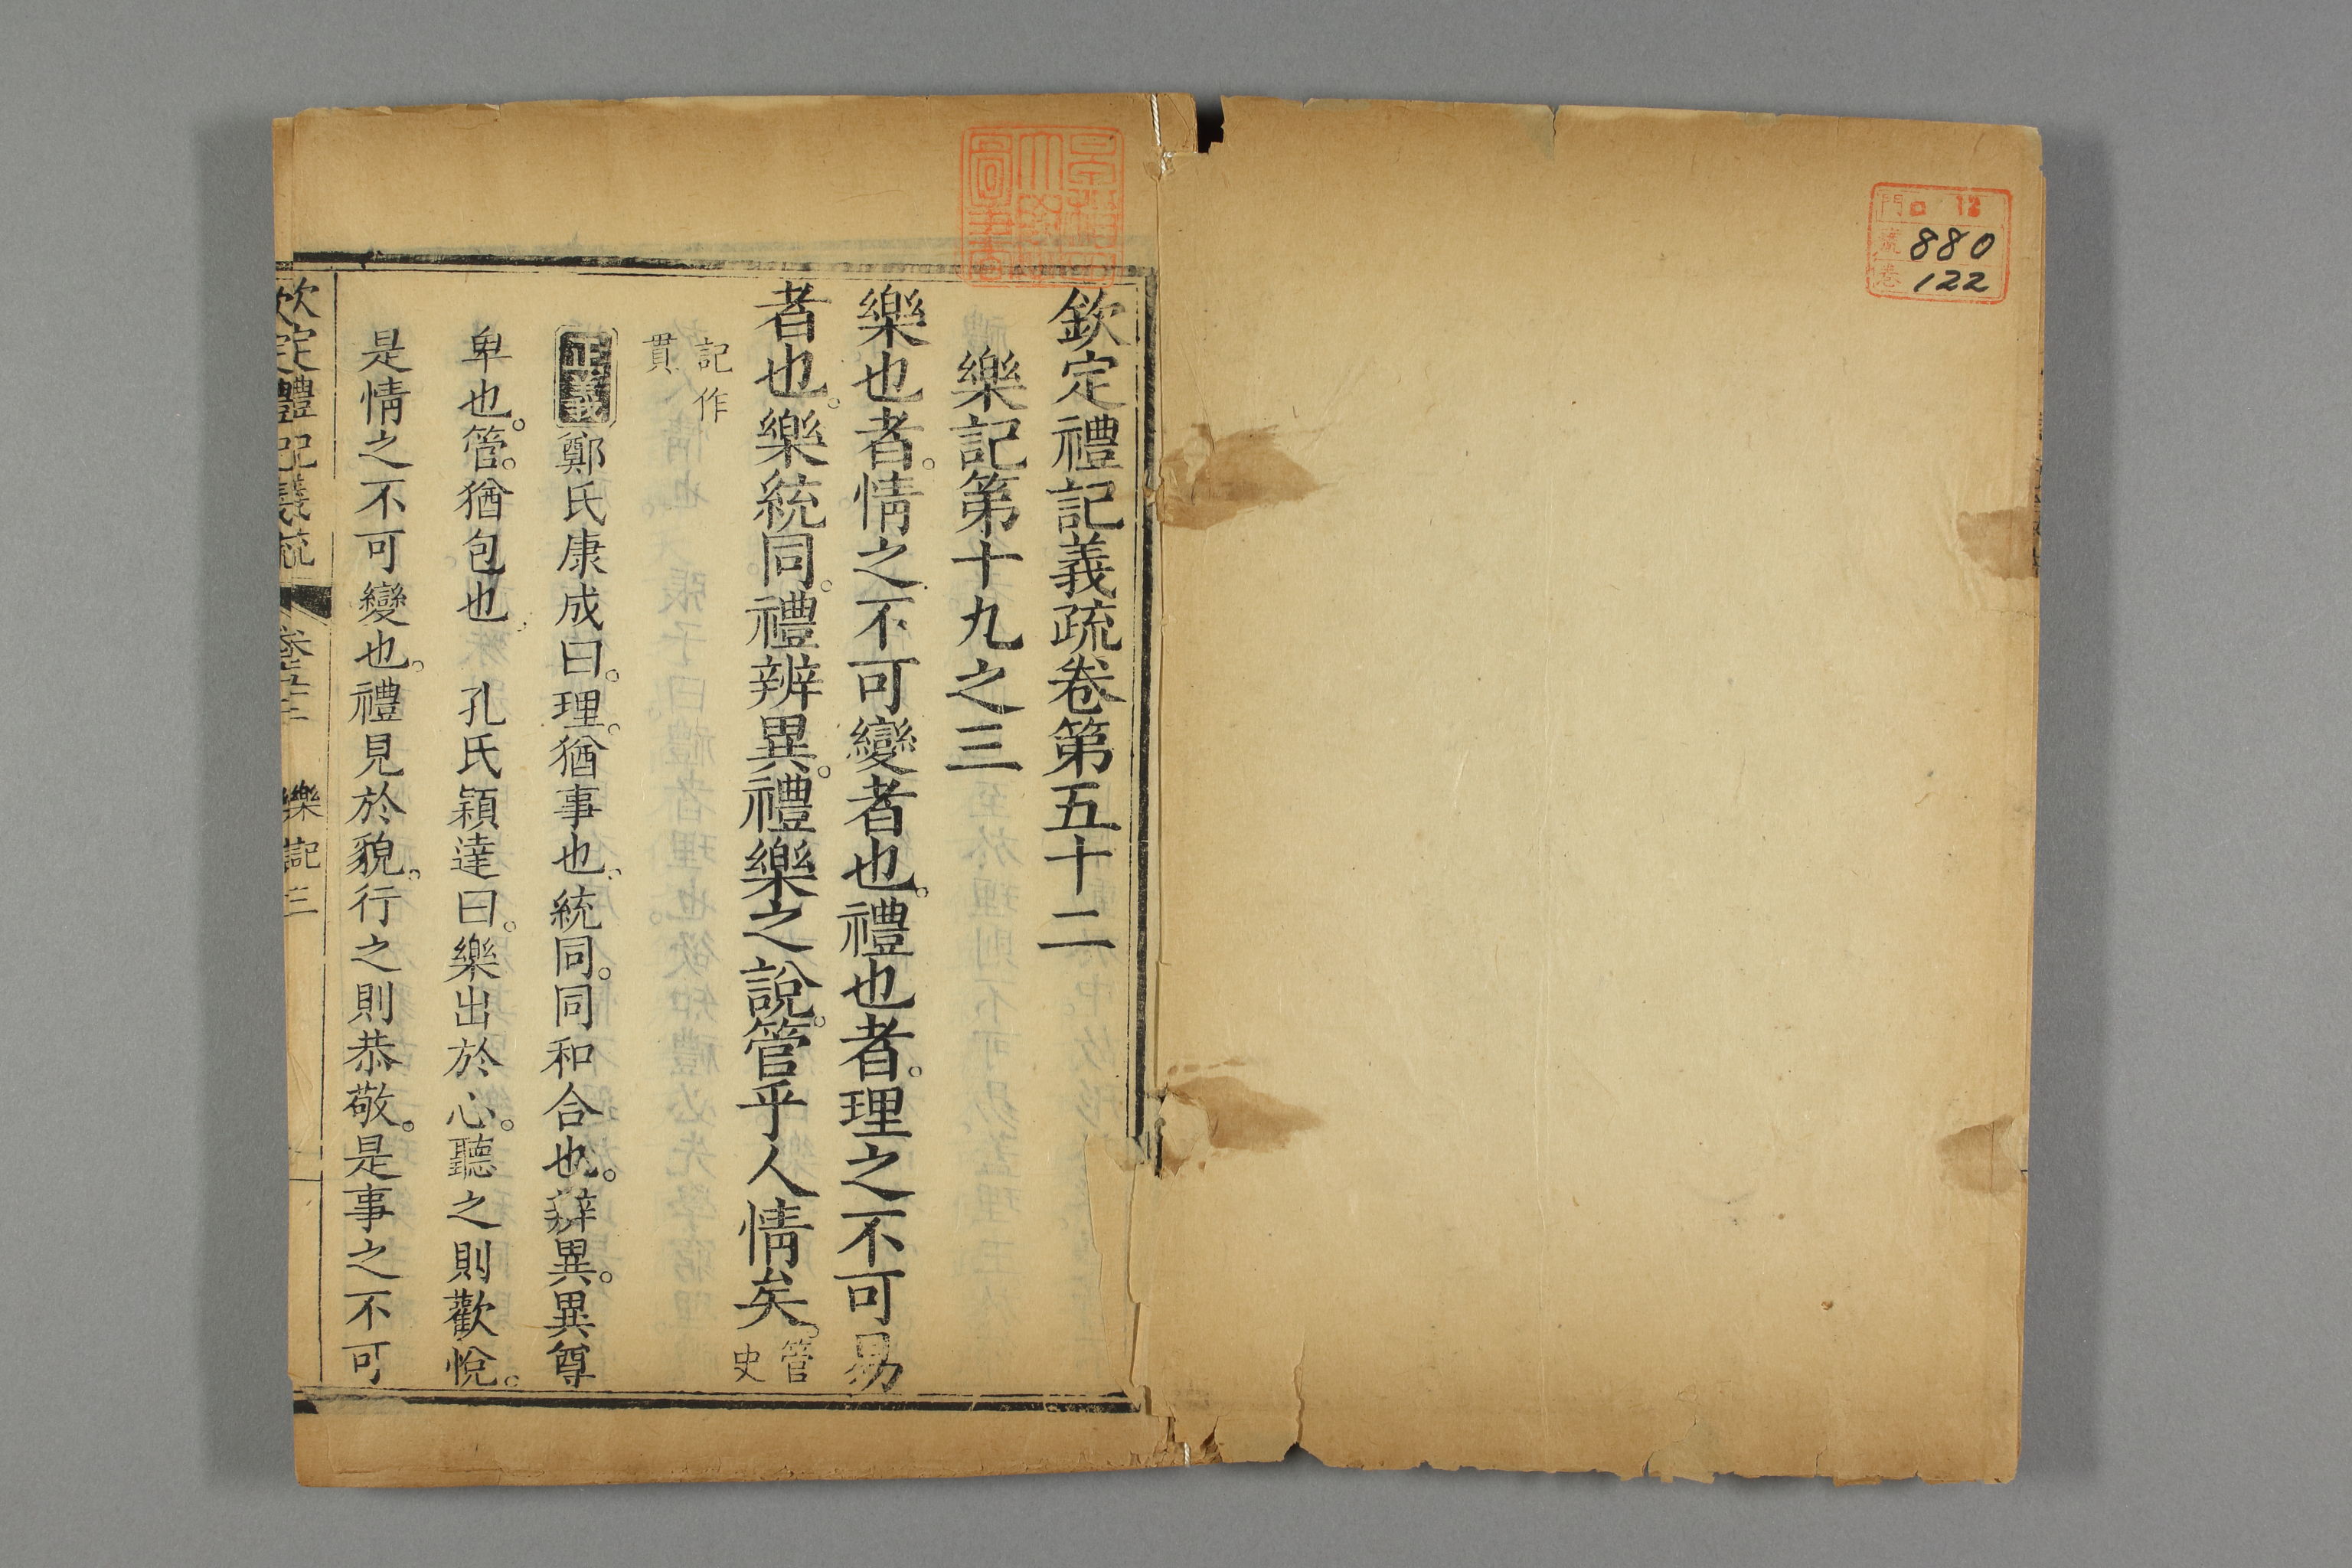 門 口 12
號 880
卷 122
欽定禮記義疏卷第五十二
樂記第十九之三
樂也者。情之不可變者也。禮也者。理之不可易
者也。樂統同。禮辨異。禮樂之說。管乎人情矣。管史
記作貫
正義鄭氏康成曰。理。猶事也。統同。同和合也。辨異。異尊
卑也。管。猶包也 孔氏穎達曰。樂出於心。聽之則歡悅。
是情之不可變也。禮見於貌。行之則恭敬。是事之不可
欽定禮記義疏 卷五十二 樂記三 一